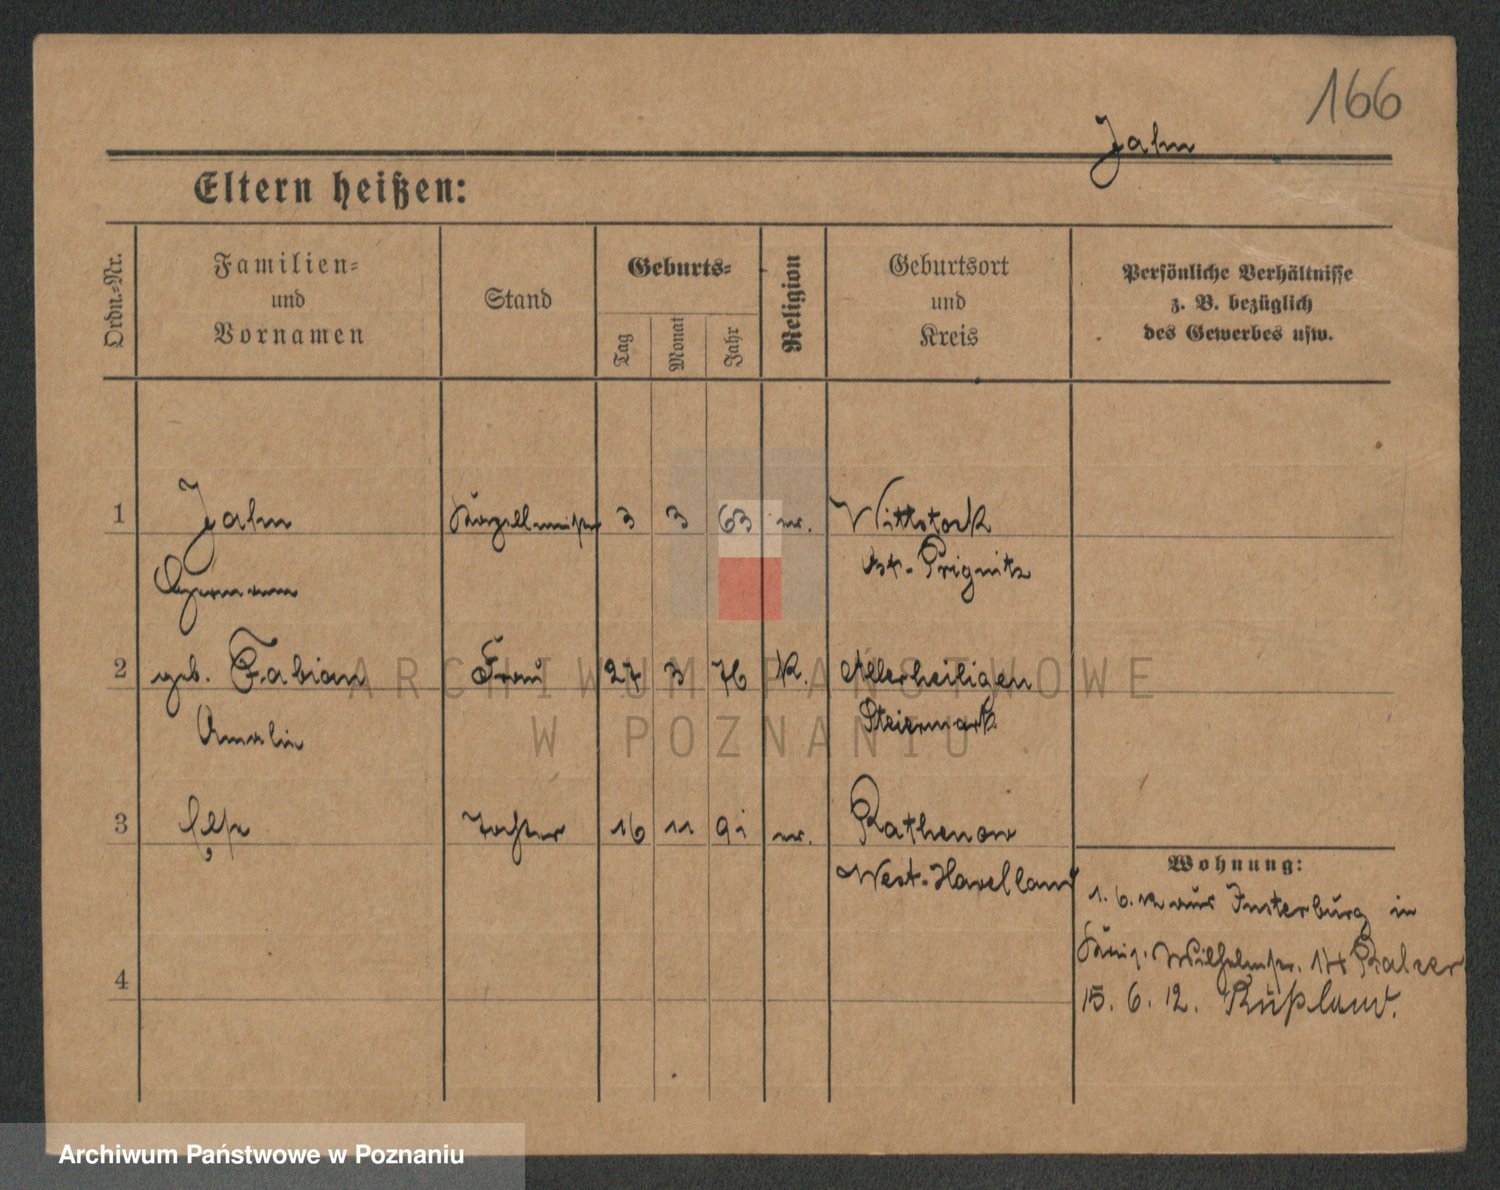 166
Jahn
Eltern heißen:
Ordn.-Nr.
Familien-
und
Vornamen
Stand
Geburts-
Tag
Monat
Jahr
Religion
Geburtsort
und
Kreis
Persönliche Verhältnisse
z. B. bezüglich
des Gewerbes usw.
1 Jahn Kapellmeister 3 3 63 ev. Wittstock
Hermann Ost-Prignitz
2 geb. Fabian Frau 27 3 76 K. Allerheiligen
Amalie Steiermark
3 Else Tochter 16 11 91 ev. Rathenow
West-Havelland
Wohnung:
1. 6. 12 aus Insterburg in
Wilhelmstr. 14
4
15. 6. 12. Rußland.
ARCHIWUM PAŃSTWOWE
W POZNANIU
Archiwum Państwowe w Poznaniu